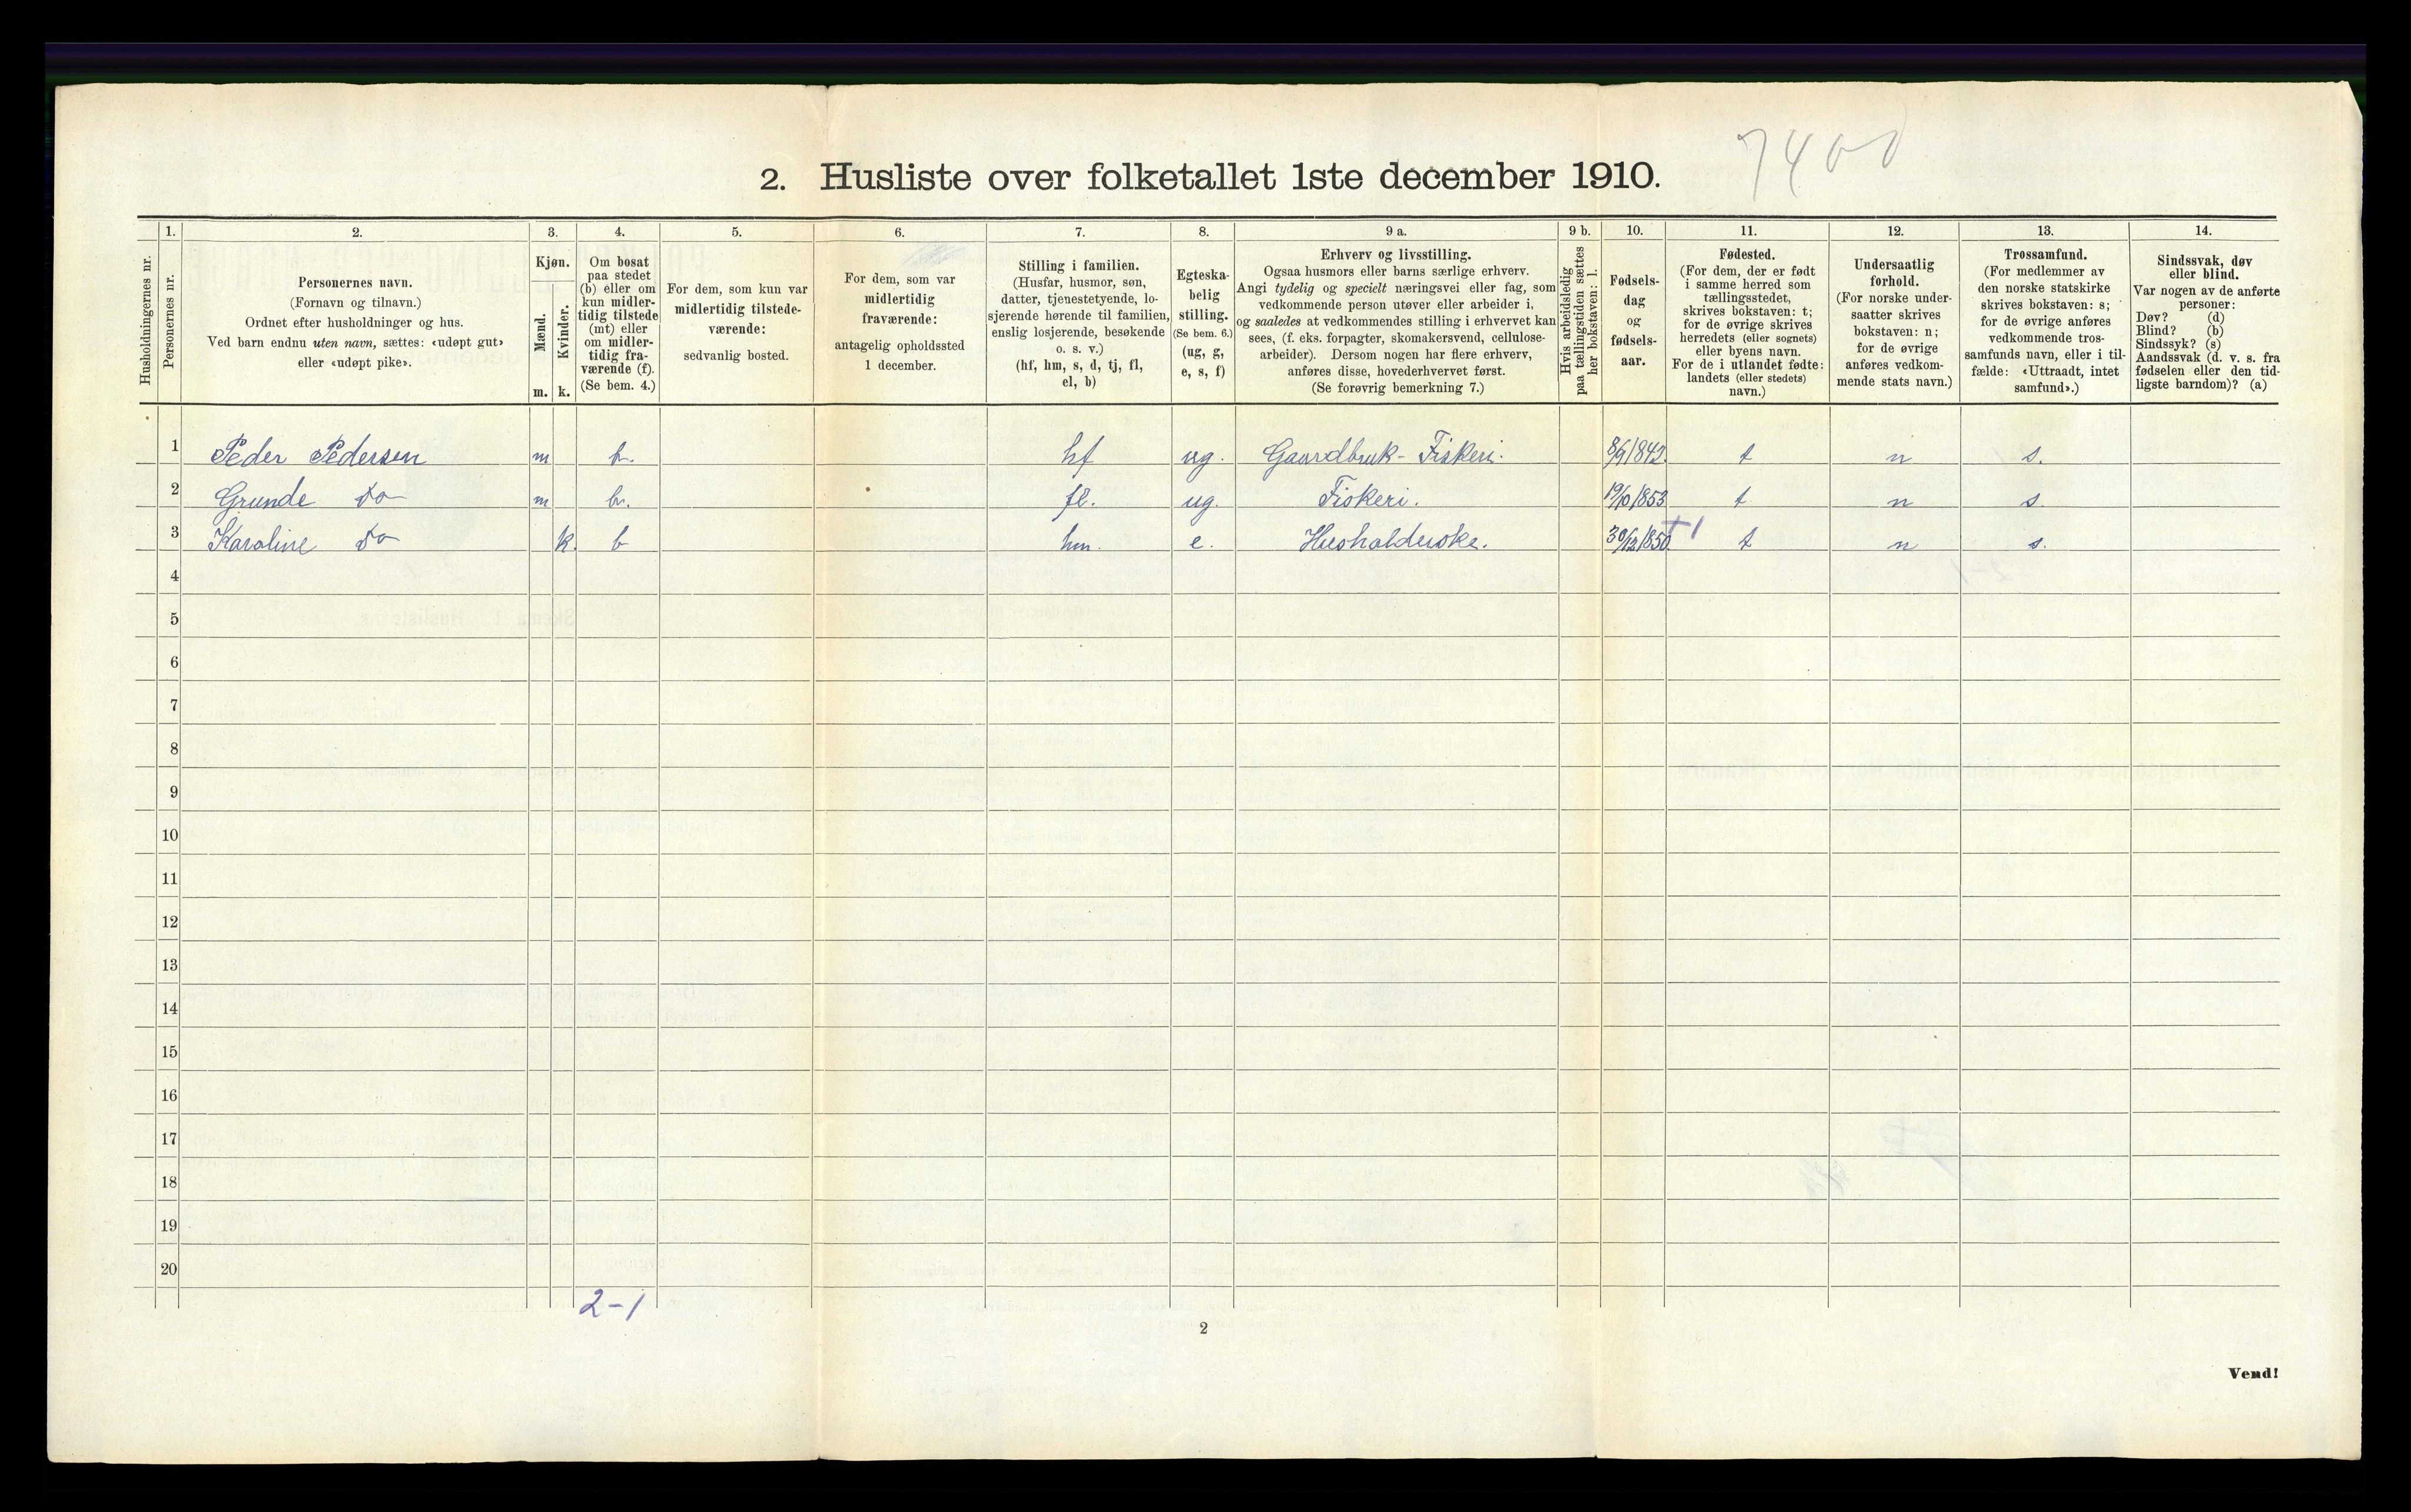 7400
2. Husliste over folketallet 1ste december 1910.
Husholdningernes nr.
1.
Personernes nr.
2.
Personernes navn.
(Fornavn og tilnavn.)
Ordnet efter husholdninger og hus.
Ved barn endnu uten navn, sættes: «udøpt gut»
eller «udøpt pike».
3.
Kjøn.
Mænd.
Kvinder.
m. k.
4.
Om bosat
paa stedet
(b) eller om
kun midler-
tidig tilstede
(mt) eller
om midler-
tidig fra-
værende (f).
(Se bem. 4.)
5.
For dem, som kun var
midlertidig tilstede-
værende:
sedvanlig bosted.
6.
For dem, som var
midlertidig
fraværende:
antagelig opholdssted
1 december.
7.
Stilling i familien.
(Husfar, husmor, søn,
datter, tjenestetyende, lo-
sjerende hørende til familien,
enslig losjerende, besøkende
o. s. v.)
(hf, hm, s, d, tj, fl,
el, b)
8.
Egteska-
belig
stilling.
(Se bem. 6.)
(ug, g,
e, s, f)
9 a.
Erhverv og livsstilling.
Ogsaa husmors eller barns særlige erhverv.
Angi tydelig og specielt næringsvei eller fag, som
vedkommende person utøver eller arbeider i,
og saaledes at vedkommendes stilling i erhvervet kan
sees, (f. eks. forpagter, skomakersvend, cellulose-
arbeider). Dersom nogen har flere erhverv,
anføres disse, hovederhvervet først.
(Se forøvrig bemerkning 7.)
9 b.
Hvis arbeidsledig
paa tællingstiden sættes
her bokstaven: l.
10.
Fødsels-
dag
og
fødsels-
aar.
11.
Fødested.
(For dem, der er født
i samme herred som
tællingsstedet,
skrives bokstaven: t;
for de øvrige skrives
herredets (eller sognets)
eller byens navn.
For de i utlandet fødte:
landets (eller stedets)
navn.)
12.
Undersaatlig
forhold.
(For norske under-
saatter skrives
bokstaven: n;
for de øvrige
anføres vedkom-
mende stats navn.)
13.
Trossamfund.
(For medlemmer av
den norske statskirke
skrives bokstaven: s;
for de øvrige anføres
vedkommende tros-
samfunds navn, eller i til-
fælde: «Uttraadt, intet
samfund».)
14.
Sindssvak, døv
eller blind.
Var nogen av de anførte
personer:
Døv? (d)
Blind? (b)
Sindssyk? (s)
Aandssvak (d. v. s. fra
fødselen eller den tid-
ligste barndom)? (a)
1 Peder Pedersen m b. hf ug. Gaardbruk- Fiskeri. 8/9 1842 t n s.
2 Grunde do m b. fl. ug. Fiskeri. 19/10 1853 t n s.
3 Karoline do k. b hm. e. Husholderske. 30/12 1850 +1 t n s.
4
5
6
7
8
9
10
11
12
13
14
15
16
17
18
19
20
2-1
2
Vend!